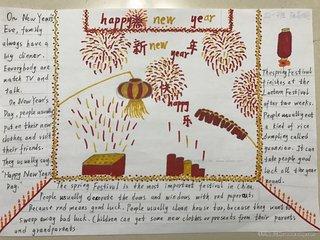 happy new year
新 年
new
year
快
乐
happy
On New Year's
Eve, family
always have a
big dinner.
Everybody are
watch TV and
talk.
On New Year's
Day, people usually
put on their new
clothes and visit
their friends.
They usually say:
"Happy New Year's
Day."
The spring Festival
finishes at the
Lantern Festival
after two weeks.
People usually eat
a kind of rice
dumpling called
yuanxiao. It can
take people good
luck all the year
round.
The spring Festival is the most important festival in China.
People usually decorate the doors and windows with red papercuts.
Because red means good luck. People usually clean house too, because they want to
sweep away bad luck. Children can get some new clothes or presents from their parents
and grandparents